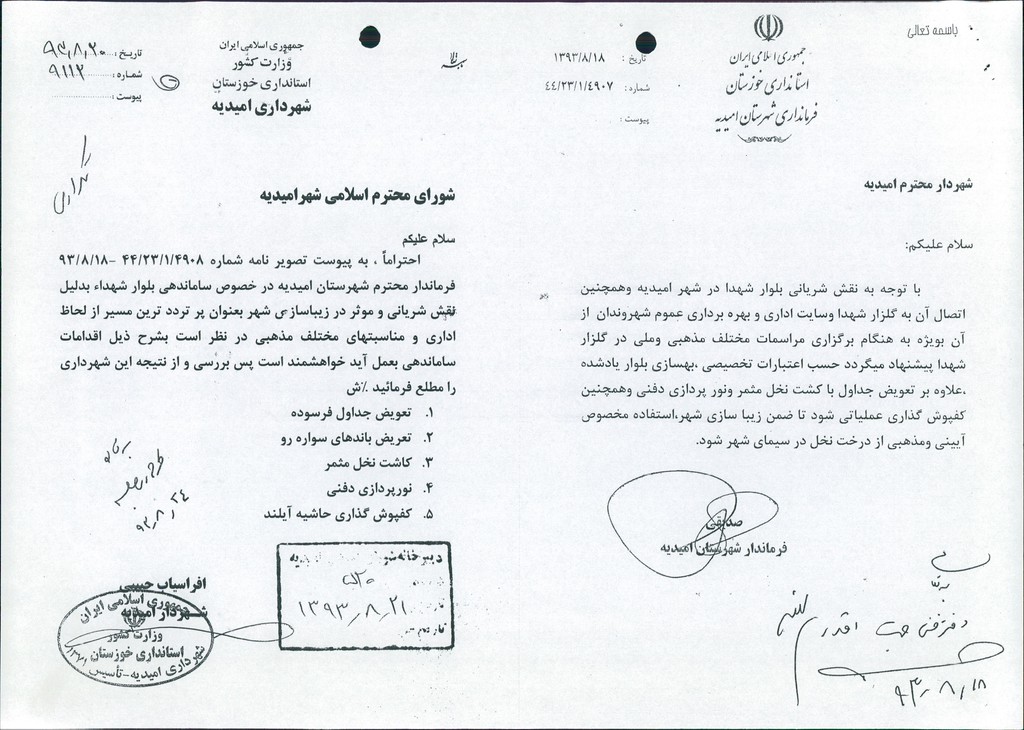 باسمه تعالی
جمهوری اسلامی ایران
استانداری خوزستان
فرمانداری شهرستان امیدیه
تاریخ : ۱۳۹۳/۸/۱۸
شماره : ۴۴/۲۳/۱/۴۹۰۷
پیوست :
شهردار محترم امیدیه
سلام علیکم:
با توجه به نقش شریانی بلوار شهدا در شهر امیدیه وهمچنین
اتصال آن به گلزار شهدا وسایت اداری و بهره برداری عموم شهروندان از
آن بویژه به هنگام برگزاری مراسمات مختلف مذهبی وملی در گلزار
شهدا پیشنهاد میگردد حسب اعتبارات تخصیصی ،بهسازی بلوار یادشده
،علاوه بر تعویض جداول با کشت نخل مثمر ونور پردازی دفنی وهمچنین
کفپوش گذاری عملیاتی شود تا ضمن زیبا سازی شهر،استفاده مخصوص
آیینی ومذهبی از درخت نخل در سیمای شهر شود.
صدیقی
فرماندار شهرستان امیدیه
دفتر فنی جهت اقدام
۹۳٫۸٫۱۸
جمهوری اسلامی ایران
وزارت کشور
استانداری خوزستان
شهرداری امیدیه
تاریخ : ۹۳٫۸٫۲۰
شماره : ۹۱۱۲
پیوست :
شورای محترم اسلامی شهرامیدیه
سلام علیکم
احتراماً ، به پیوست تصویر نامه شماره ۴۴/۲۳/۱/۴۹۰۸ –۹۳/۸/۱۸
فرماندار محترم شهرستان امیدیه در خصوص ساماندهی بلوار شهداء بدلیل
نقش شریانی و موثر در زیباسازی شهر بعنوان پر تردد ترین مسیر از لحاظ
اداری و مناسبتهای مختلف مذهبی در نظر است بشرح ذیل اقدامات
ساماندهی بعمل آید خواهشمند است پس بررسی و از نتیجه این شهرداری
را مطلع فرمائید ٪ش
۱. تعویض جداول فرسوده
۲. تعریض باندهای سواره رو
۳. کاشت نخل مثمر
۴. نورپردازی دفنی
۵. کفپوش گذاری حاشیه آیلند
۹۳٫۸٫۲۴
افراسیاب حبیبی
شهردار امیدیه
جمهوری اسلامی ایران
وزارت کشور
استانداری خوزستان
شهرداری امیدیه-تأسیس
دبیرخانه
۱۳۹۳٫۸٫۲۱